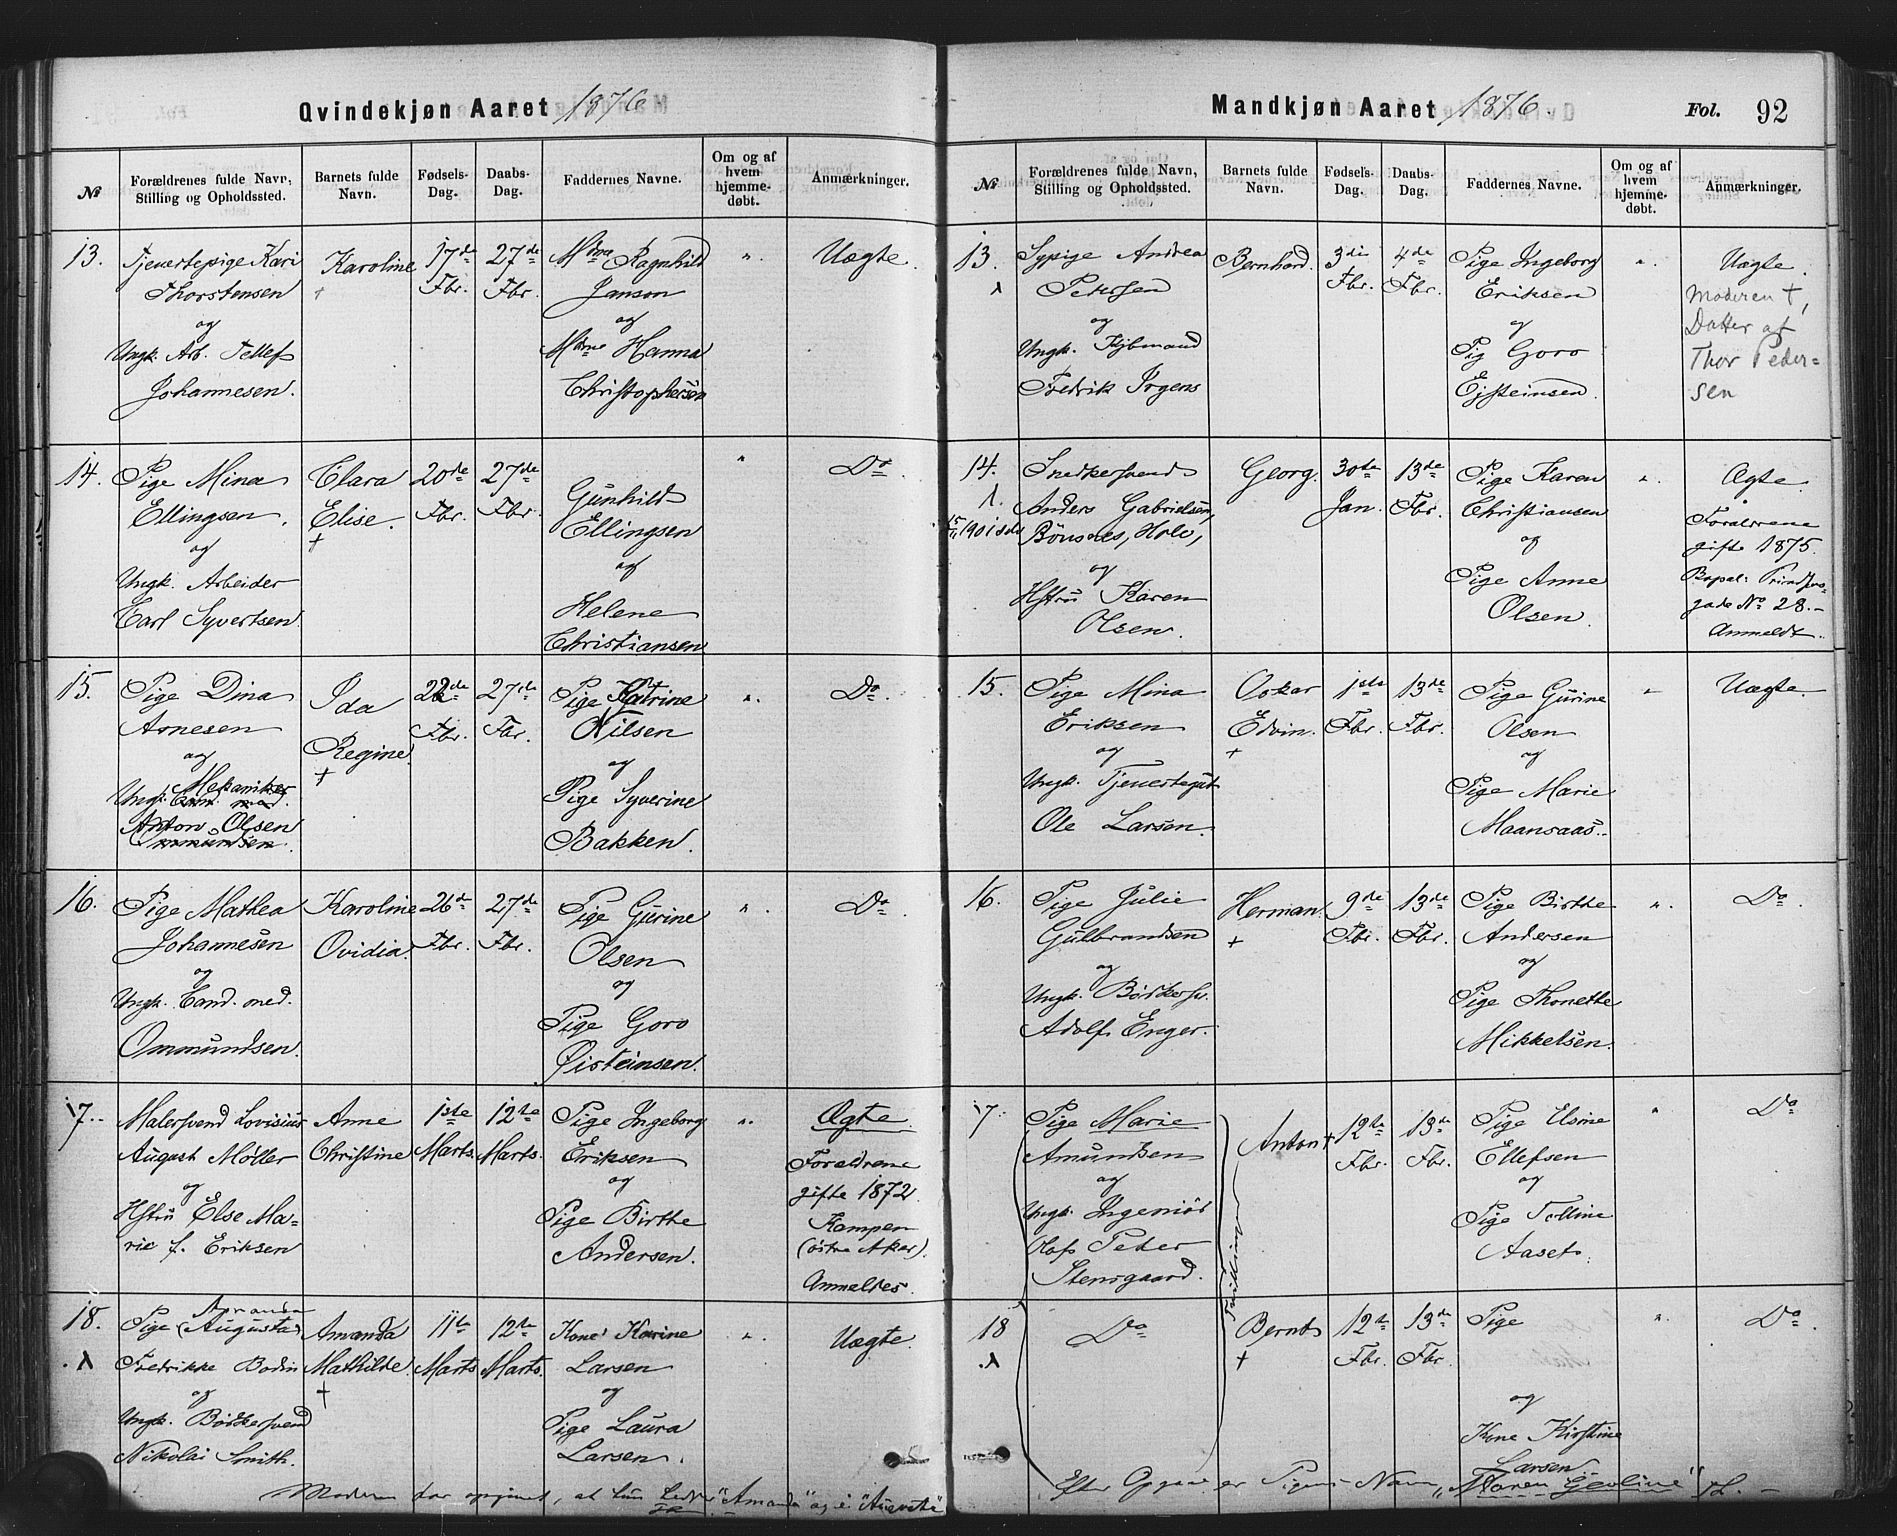 Qvindekjøn Aaret 1876
№
Forældrenes fulde Navn,
Stilling og Opholdssted.
Barnets fulde
Navn.
Fødsels-
Dag.
Daabs-
Dag.
Faddernes Navne.
Om og af
hvem
hjemme-
døbt.
Anmærkninger.
13.
Tjenestepige Kari
Thorstensen
og
Ungk. Arb. Tellef
Johannesen.
Karoline
17de
Fbr.
27de
Fbr.
Ragnhild
Janson
og
Hanna
Christophersen
Uægte.
14.
Pige Mina
Ellingsen,
og
Ungk. Arbeider
Carl Syvertsen.
Clara
Elise.
†
20de
Fbr.
27de
Fbr.
Gunhild
Ellingsen
og
Helene
Christiansen
Do.
15.
Pige Dina
Arnesen
og
Mekaniker
Ungk. Cand. med.
Anton Olsen
Ommundsen.
Ida
Regine.
†
22de
Fbr.
27de
Fbr.
Pige Katrine
Nilsen
og
Pige Syverine
Bakken.
Do.
16.
Pige Mathea
Johannesen
og
Ungk. Cand. med.
Ommundsen.
Karoline
Ovidia.
26de
Fbr.
27de
Fbr.
Pige Gurine
Olsen
og
Pige Goro
Øisteinsen.
Do.
17.
Malersvend Lovisius
August Møller
og
Hstru Else Ma-
rie f. Eriksen
Anne
Christine
1ste
Marts.
12te
Marts.
Pige Ingeborg
Eriksen
og
Pige Birthe
Andersen.
Ægte.
Forældrene
gifte 1872
Kampen
(østre Aker).
Anmeldes.
18.
Amanda
Pige (Augusta)
Fredrikke Bodin
og
Ungk. Bødkersvend
Nikolai Smith.
Amanda
Mathilde.
†
11te
Marts
12te
Marts.
Kone Karine
Larsen
og
Pige Laura
Larsen.
Uægte
Moderen har opgivet, at hun heder "Amanda" og ei "Augusta"
Mandkjøn Aaret 1876
Fol. 92
№
Forældrenes fulde Navn,
Stilling og Opholdssted.
Barnets fulde
Navn.
Fødsels-
Dag.
Daabs-
Dag.
Faddernes Navne.
Om og af
hvem
hjemme-
døbt.
Anmærkninger.
13.
Sypige Andrea
Petersen
og
Ungk. Kjbmand
Fredrik Irgens
Bernhard.
3die
Fbr.
4de
Fbr.
Pige Ingeborg
Eriksen
og
Pig Goro
Ejsteinsen.
Uægte.
Moderen †,
Datter af
Thor Peder-
sen
14.
1901
Snedkersvend
Anders Gabrielsen,
Bønsnes, Hole,
og
Hstru Karen
Olsen.
Georg.
30te
Jan.
13de
Fbr.
Pige Karen
Christiansen
og
Pige Anne
Olsen.
Ægte.
Forældrene
gifte 1875.
gade No 28.-
Anmeldt.
15.
Pige Mina
Eriksen
og
Ungk. Tjenestegut
Ole Larsen.
Oskar
Edvin.
†
1ste
Fbr.
13de
Fbr.
Pige Gurine
Olsen
og
Pige Marie
Maansaas.
Uægte.
16.
Pige Julie
Gulbrandsen
og
Ungk. Bødkersv.
Adolf Enger.
Herman.
†
9de
Fbr.
13de
Fbr.
Pige Birthe
Andersen
og
Pige Thonette
Mikkelsen.
Do.
17.
Pige Marie
Amundsen
og
Ungk. Ingeniør
Olaf Peter
Stensgaard.
Tvillinger
Anton †
12te
Fbr.
13de
Fbr.
Pige Elsine
Ellefsen
og
Pige Telline
Aaset.
Do
18
Do
Bernt
†
12te
Fbr.
13de
Fbr.
Pige
og
Kone Kirstine
Larsen
Do.
Efter Opgave er Pigens Navn „Maren Geoline“